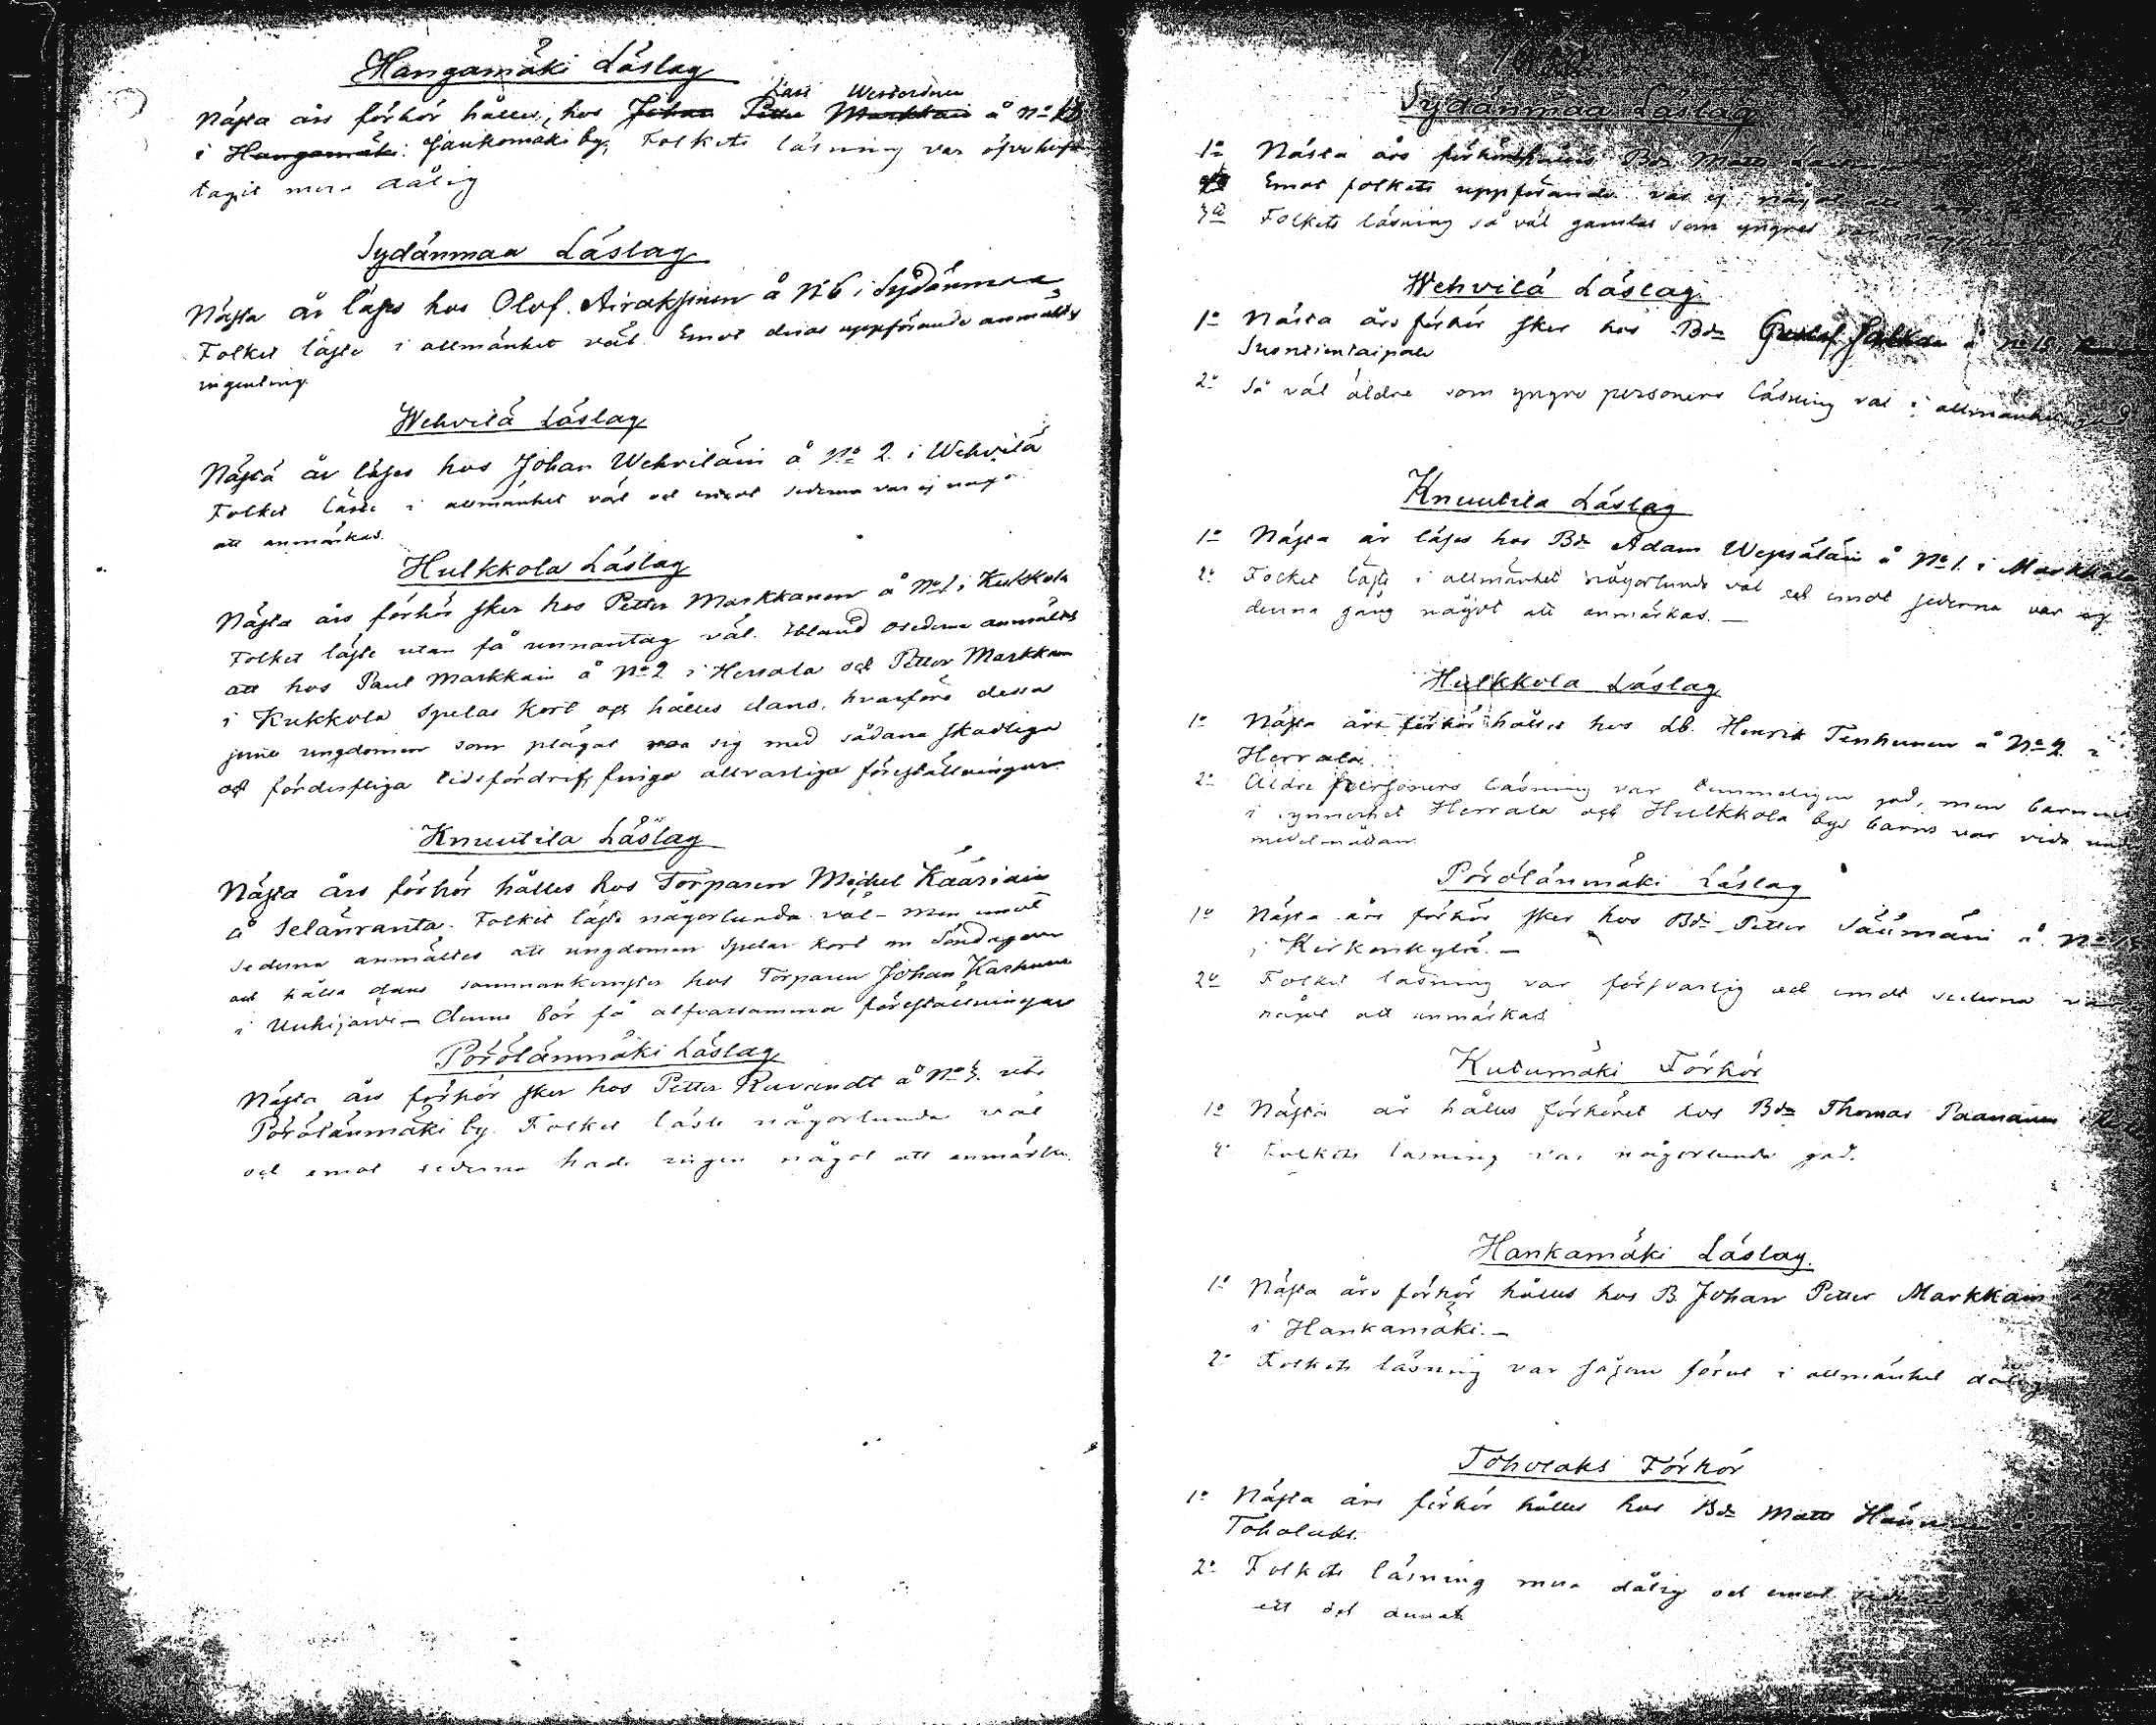 Hangamäki Läslag
Lars Westerinen
Nästa års förhör hålles, hos Johan Petter Markkain å No
i Hangamäki. Jauhomäki by, Folkets läsning var
tagit mera dålig
Sydänmaa Läslag
Nästa år läses hos Olof Airaksinen å No 6 i Sydänmaa
Folket läste i allmänhet väl. Emot deras uppförande anmältes
ingenting.
Wehvilä Läslag
Nästa år läses hos Johan Wehviläin å No 2 i Wehvilä
Folket läste i allmänhet väl och emot sederna var ej något
att anmärkas.
Hulkkola Läslag
Nästa års förhör sker hos Petter Markkanen å No 1 i Kukkola
Folket läste utan få unnantag väl. ibland osederne anmältes
att hos Paul Markkain å No 2 i Herrala och Petter Markkain
i Kukkola spelas kort och hålles dans, hvarföre dessa
jemte ungdomen som plägat roa sig med sådana skadliga
och förderfliga tidsfördrif, finge allvarliga föreställningar.
Knuutila Läslag
Nästa års förhör hålles hos Torparen Michel Kääriäin
å Selänranta. Folket läste någorlunda väl – men emot
sederna anmältes att ungdomen spelar kort om Söndagarne
och hålla dans sammankomster hos Torparen Johan Karhunen
i Uuhijarvi – denne bör få alfvarsamma föreställningar
Pörölänmäki Läslag
Nästa års förhör sker hos Petter Ruvandt å No 3. uti
Pörölänmäki by. Folket läste någorlunda väl
och emot sederna hade ingen något att anmärka.
Sydänmaa Läslag
1o Nästa års förhör Bdn Matts
Emot folkets uppförande var ej något
3o Folkets läsning så väl gamlas som yngres var
Wehvilä Läslag
1o Nästa års förhör sker hos Bdn Gustaf å No 15
Suontientaipale
2o Så väl äldre som yngre personers läsning var i allmänhet god
Knuutila Läslag
1o Nästa år läses hos Bdn Adam Wepsäläin å No 1. i Markkala
2o Folket läste i allmänhet någorlunda väl och emot sederna var ej
denna gång något att anmärkas. –
Hulkkola Läslag
1o Nästa års förhör hålles hos Lb. Henrik Tenhunen å No 2 i
Herrala.
2o Äldre personers läsning var temmeligen god, men barnens
i synnerhet Herrala och Hulkkola bys barns var vida under
medelmåttan.
Pörölänmäki Läslag
1o Nästa års förhör sker hos Bdn Petter Säämäin å No
i Kirkonkylä. –
2o Folket läsning var försvarlig och emot sederna var
något att anmärkas
Kutumäki Förhör
1o Nästa år hålles förhöret hos Bdn Thomas Paananen
2o Folkets läsning var någorlunda god.
Hankamäki Läslag.
1o Nästa års förhör hålles hos B. Johan Petter Markkain
i Hankamäki. –
2o Folkets läsning var såsom förut i allmänhet dålig
Toholaks Förhör
1o Nästa års förhör hålles hos Bdn Matts
Toholaks.
2o Folkets läsning mera dålig och emot
ett och annat